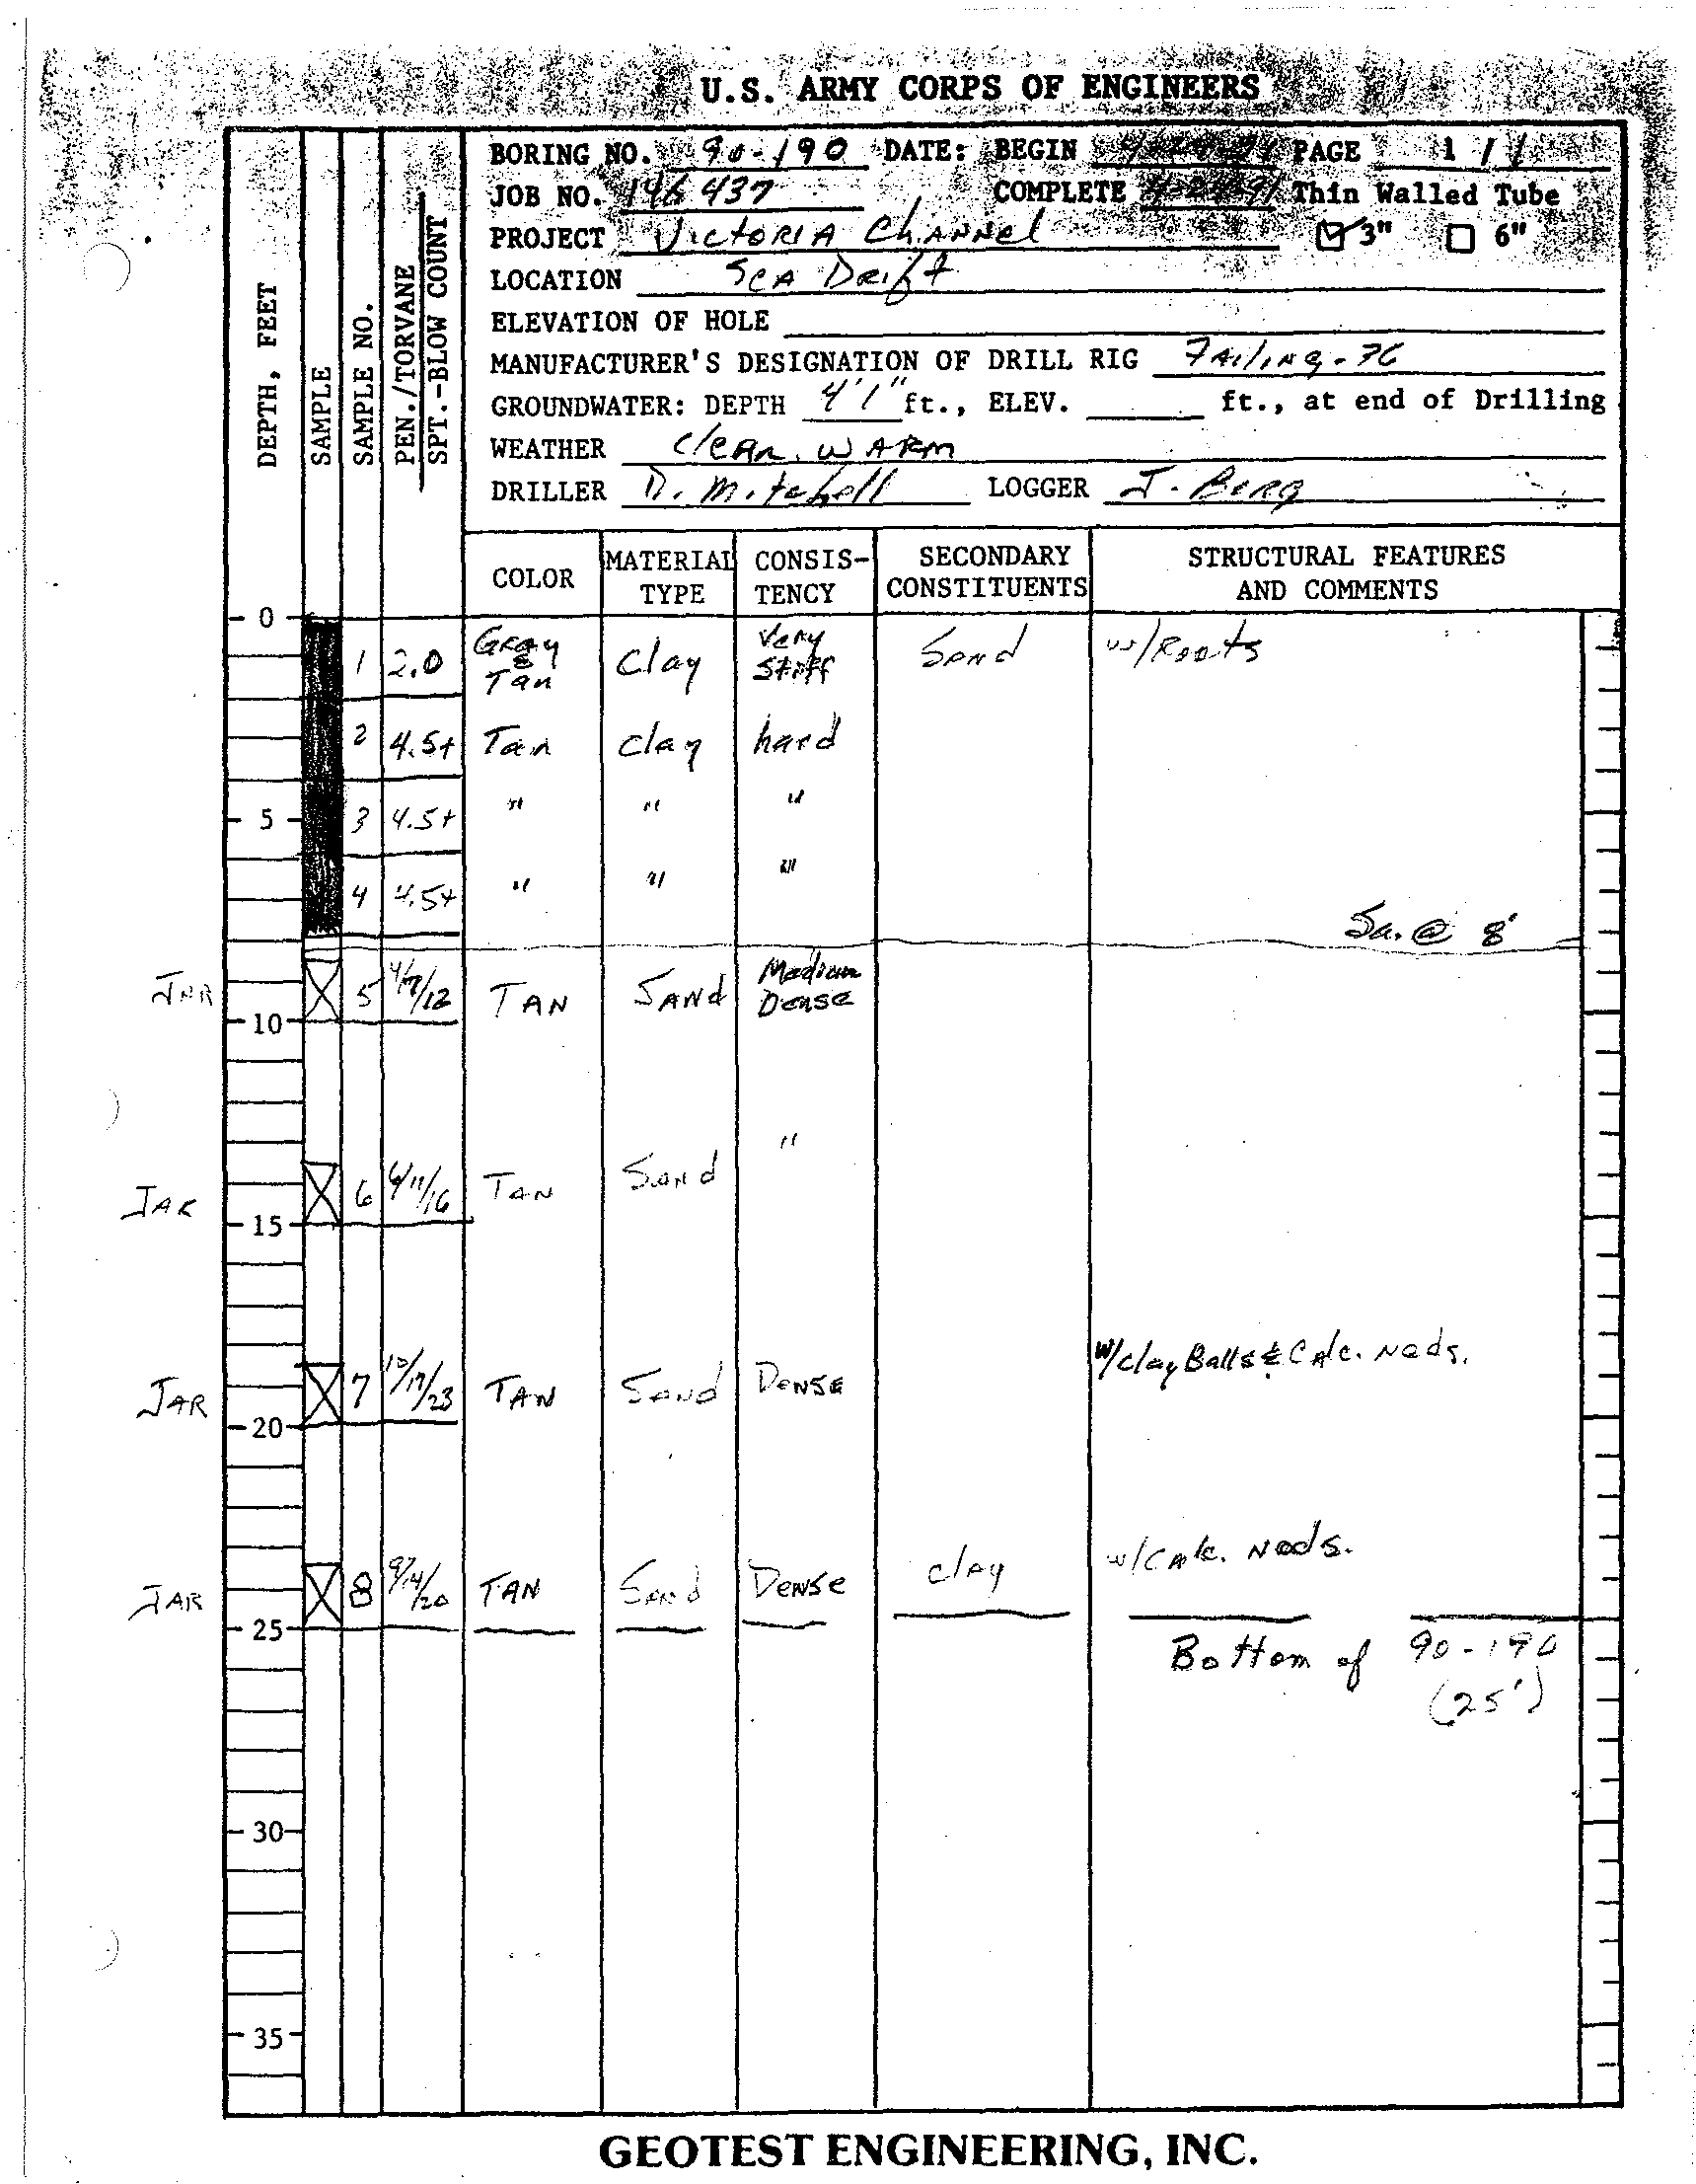 U.S. ARMY CORPS OF ENGINEERS
DEPTH, FEET
SAMPLE
SAMPLE NO.
PEN./TORVANE
SPT.-BLOW COUNT
BORING NO. 90-190 DATE: BEGIN PAGE 1 / 1
JOB NO. 146437 COMPLETE Thin Walled Tube
PROJECT Victoria Channel 3" 6"
LOCATION Sea Drift
ELEVATION OF HOLE
MANUFACTURER'S DESIGNATION OF DRILL RIG Failing-
GROUNDWATER: DEPTH 4'1" ft., ELEV. ft., at end of Drilling
WEATHER Clear, Warm
DRILLER D. Mitchell LOGGER J. Berg
COLOR MATERIAL TYPE CONSIS-TENCY SECONDARY CONSTITUENTS STRUCTURAL FEATURES AND COMMENTS
0
1 2.0 Gray & Tan Clay Very Stiff Sand w/Roots
2 4.5+ Tan clay hard
5 3 4.5+ " " "
4 4.5+ " " "
Sa. @ 8'
JAR 5 4/7/12 TAN SAND Medium Dense
10
"
JAR 6 6/11/16 TAN Sand
15
w/clay Balls & Calc. Nods.
JAR 7 10/17/23 TAN Sand Dense
20
JAR 8 9/14/20 TAN Sand Dense clay w/Calc. Nods.
25
Bottom of 90-190
(25')
30
35
GEOTEST ENGINEERING, INC.